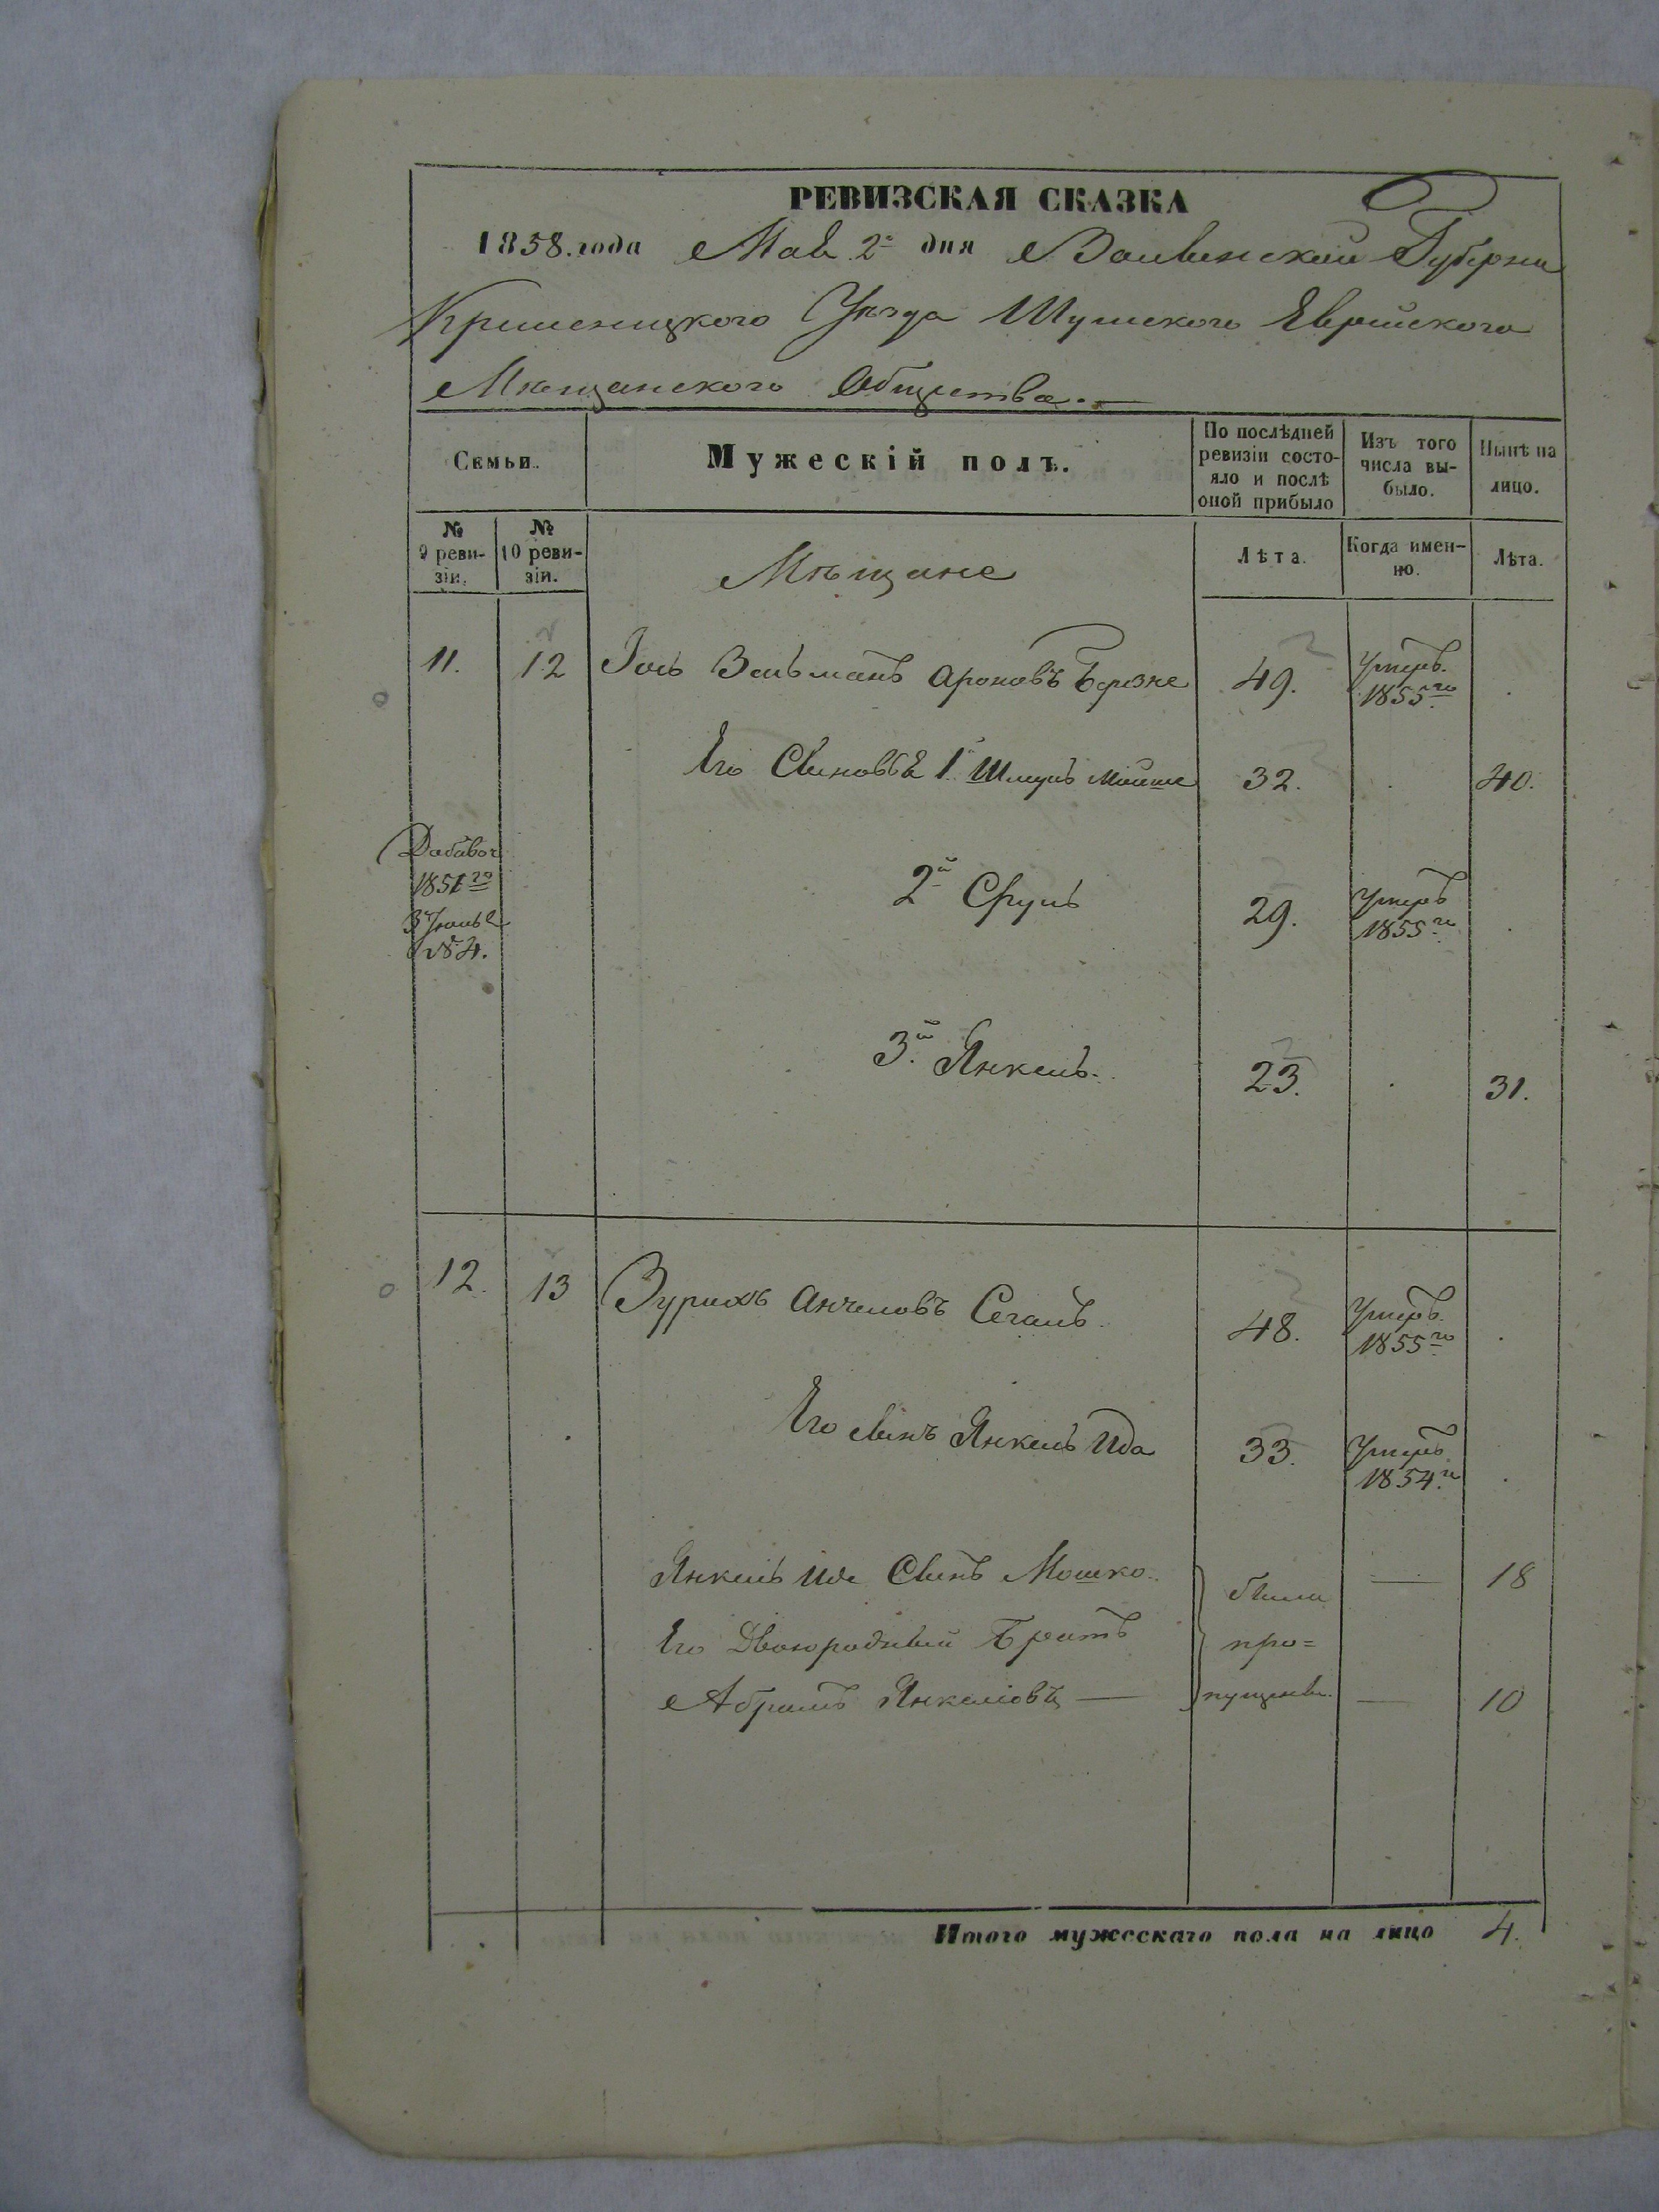 РЕВИЗСКАЯ СКАЗКА
1858. года Маія 2го дня Волынской Губерніи
Кременецкого Уѣзда Шумского Еврейского
Мѣщанского Общества.—
Семьи. Мужескій полъ. По послѣдней ревизіи состояло и послѣ оной прибыло Изъ того числа выбыло. Нынѣ на лицо.
№ 9 ревизіи. № 10 ревизіи. Мѣщане Лѣта. Когда именно. Лѣта.
11. 12 Іось Зельманъ Ароновъ 49. Умеръ. 1855го
Его Сыновья 1й Шмуль Мойше 32. 40.
Добавоч
1851го
3 Іюня
№ 4.
2й Сруль 29. Умеръ 1855го
3й Янкель. 23. 31.
12. 13 Анчеловъ Сегаль. 48. Умеръ. 1855го
Его сынъ Янкель Ида 33. Умеръ 1854го
Янкель Иде Сынъ Мошко.. были — 18
Его Двоюродный Братъ про=
Абрамъ Янкеліовъ — пущены. — 10
Итого мужескаго пола на лицо 4.